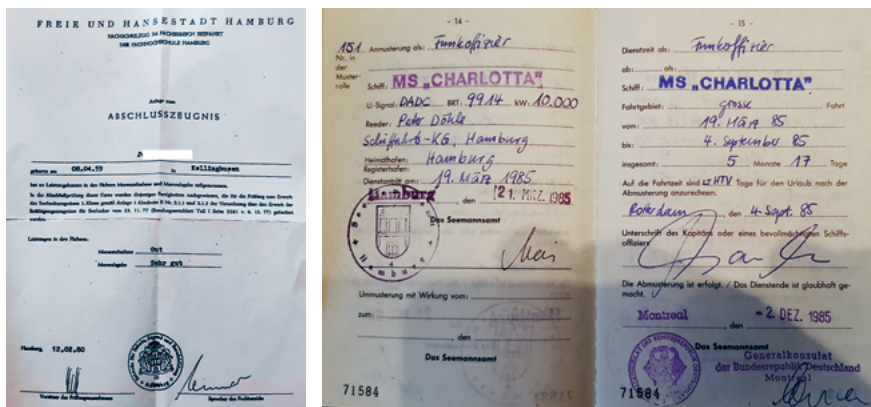 FREIE UND HANSESTADT HAMBURG
FACHSCHULZUG IM FACHBEREICH SEEFAHRT
DER FACHHOCHSCHULE HAMBURG
Anlage zum
ABSCHLUSSZEUGNIS
geboren am 08.04.59 in Kellinghusen
hat an Leistungskursen in den Fächern Morseaufnahme und Morseabgabe teilgenommen.
Leistungen in den Fächern:
Morseaufnahme Gut
Morseabgabe Sehr gut
Hamburg, 12.02.80
Vorsitzer des Prüfungsausschusses
Sprecher des Fachbereichs
- 14 -
151 Anmusterung als: Funkoffizier
Nr. in
der
Muster-
rolle
Schiff: MS „CHARLOTTA"
U.-Signal: DADC BRT: 9914 kW: 10.000
Reeder: Peter Döhle
Schiffahrts-KG, Hamburg
Heimathafen: Hamburg
Registerhafen:
Dienstantritt am: 19. März 1985
Hamburg, den 21. MRZ. 1985
Das Seemannsamt
Hamburg
Ummusterung mit Wirkung vom:
zum:
, den
Das Seemannsamt
71584
- 15 -
Dienstzeit als: Funkoffizier
ab: als:
Schiff: MS „CHARLOTTA"
Fahrtgebiet: grosse Fahrt
vom: 19. März 85
bis: 4. September 85
insgesamt: 5 Monate 17 Tage
Auf die Fahrtzeit sind LT HTV Tage für den Urlaub nach der
Abmusterung anzurechnen.
Rotterdam, den 4. Sept. 85
Unterschrift des Kapitäns oder eines bevollmächtigten Schiffs-
offiziers
Die Abmusterung ist erfolgt. / Das Dienstende ist glaubhaft ge-
macht.
Montreal, den - 2. DEZ. 1985
Das Seemannsamt
Generalkonsulat
der Bundesrepublik Deutschland
Montreal
71584